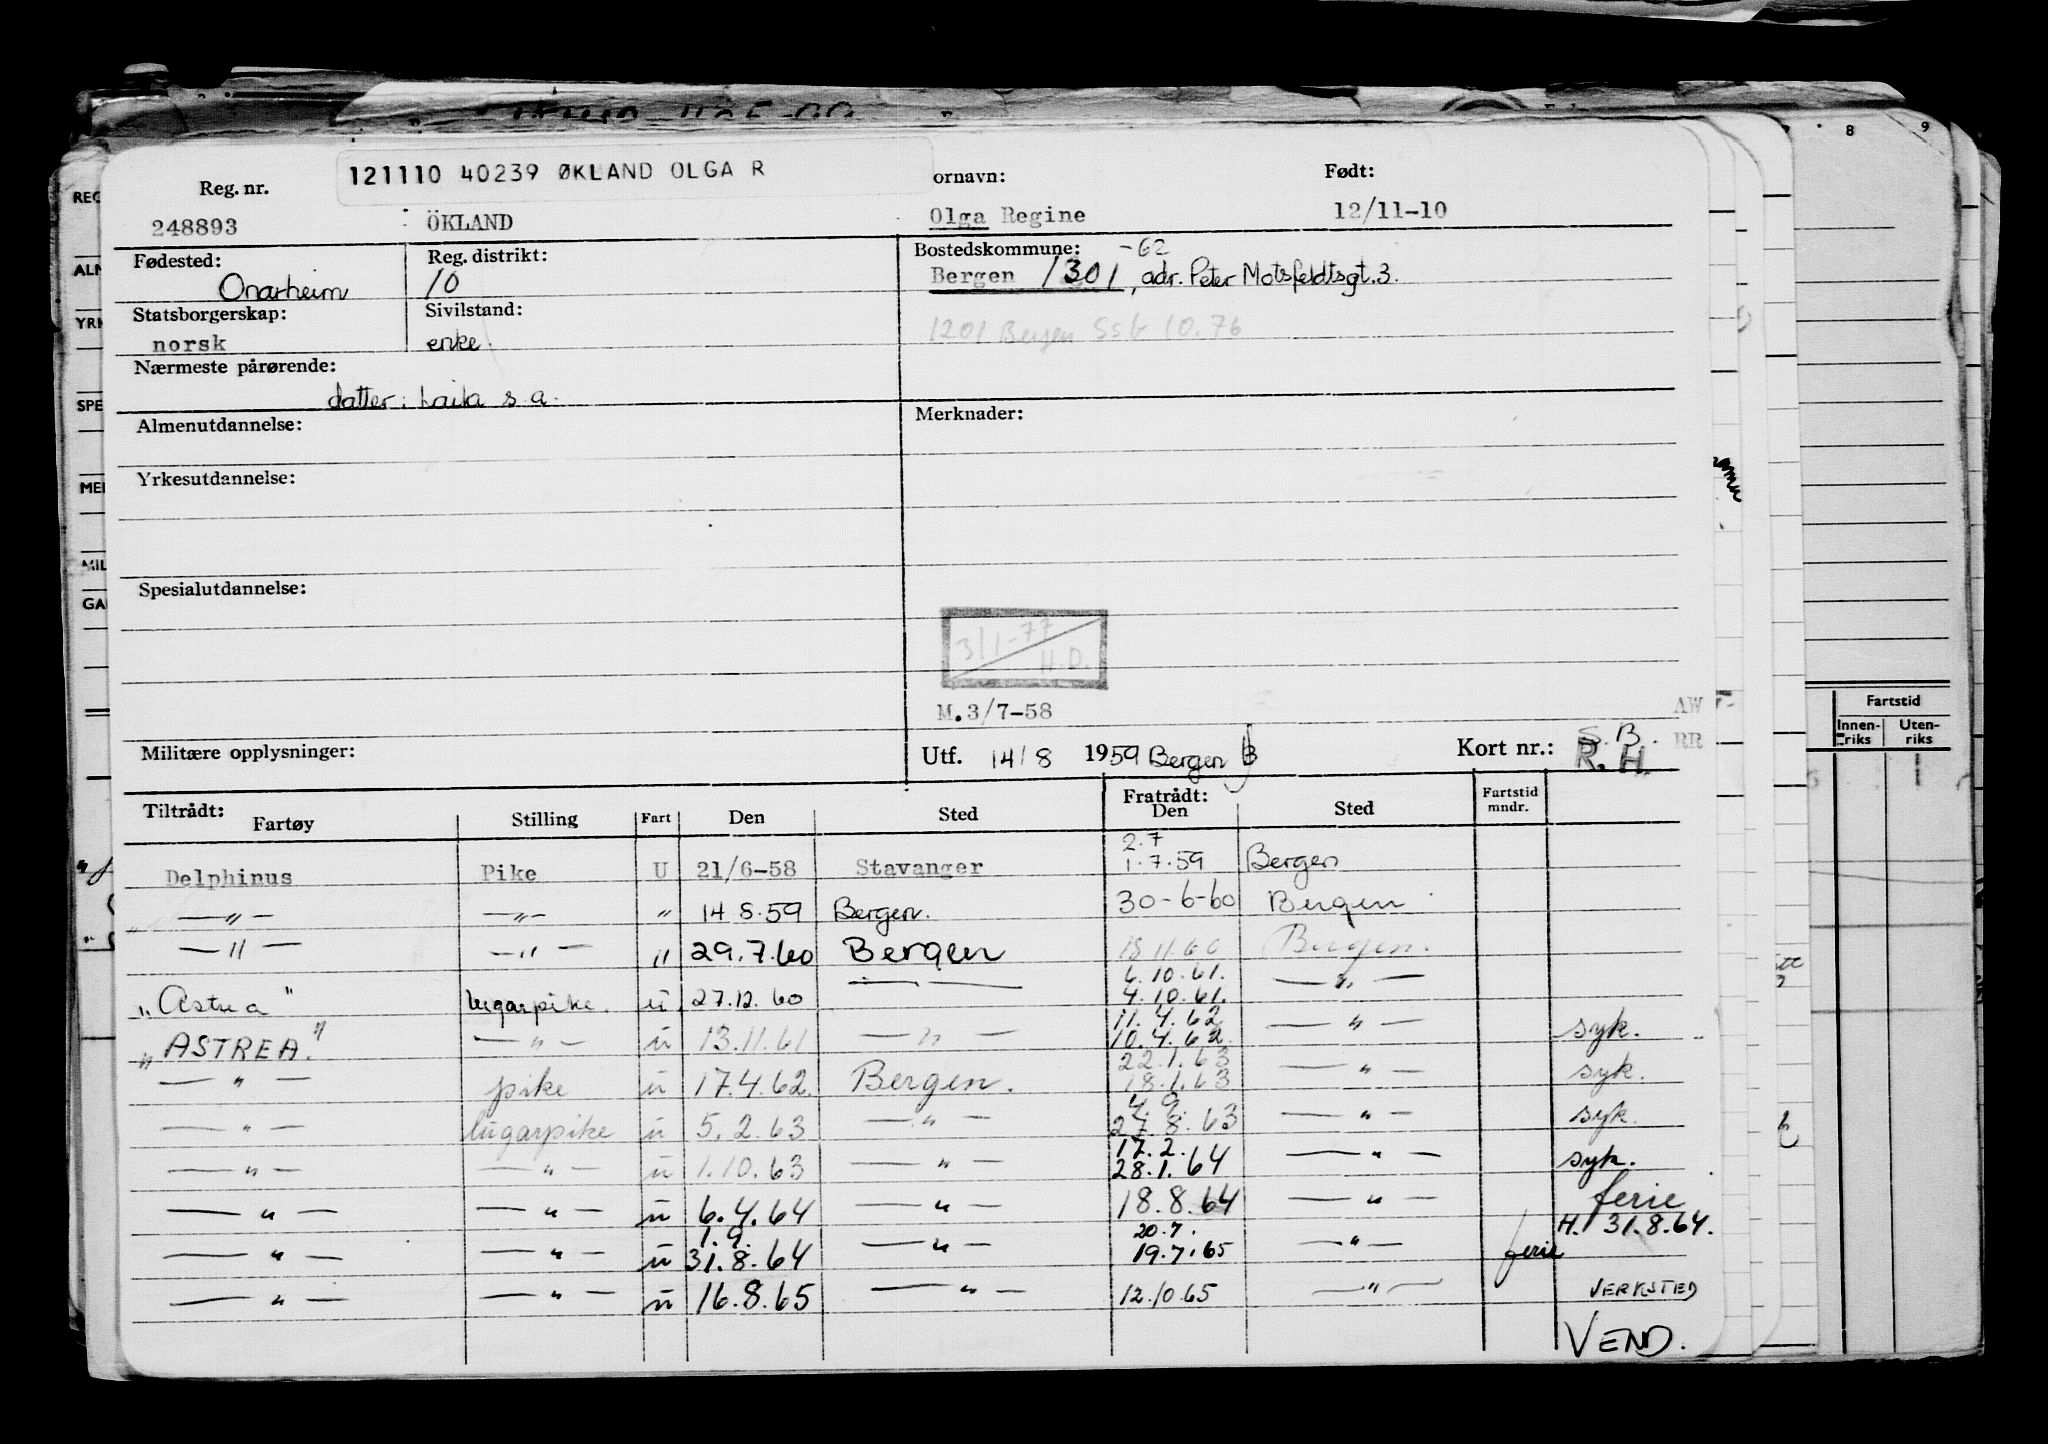 121110 40239 ØKLAND OLGA R
Reg. nr. ornavn: Født:
248893 ÖKLAND Olga Regine 12/11-10
Fødested: Reg. distrikt: Bostedskommune: -62
Onarheim 10 Bergen 1301, adr. Peter Motsfeldtsgt. 3.
Statsborgerskap: Sivilstand:
norsk enke. 1201 Bergen SSb 10.76
Nærmeste pårørende:
datter: Laila s.a.
Almenutdannelse: Merknader:
Yrkesutdannelse:
Spesialutdannelse:
3/1-77
H.O.
M.3/7-58 AW
Militære opplysninger: Utf. 14/8 1959 Bergen Kort nr.: S.B. RR
R.H.
Tiltrådt: Fratrådt: Fartstid
Fartøy Stilling Fart Den Sted Den Sted mndr.
2.7
Delphinus Pike U 21/6-58 Stavanger 1.7.59 Bergen
—"— —"— " 14.8.59 Bergen. 30-6-60 Bergen
—"— —"— " 29.7.60 Bergen 18.11.60 Bergen.
6.10.61.
"Astrea" lugarpike. u. 27.12.60 — 4.10.61. —"—
11.4.62
"ASTREA." —"— u 13.11.61 —"— 10.4.62. —"— syk.
22.1.63
—"— pike u 17.4.62. Bergen. 18.1.63 —"— syk.
4.9.
—"— lugarpike u 5.2.63 —"— 27.8.63 —"— syk.
17.2.
—"— —"— u 1.10.63 —"— 28.1.64 —"— syk.
—"— —"— u 6.4.64 —"— 18.8.64 —"— ferie
1.9. 20.7. H. 31.8.64.
—"— —"— u 31.8.64 —"— 19.7.65 —"— ferie
—"— —"— u 16.8.65 —"— 12.10.65 —"— VERKSTED
VEND.
REG
ALM
YRK
SPE
MEI
MIL
GA
8 9
Fartstid
Innen-
riks
Uten-
riks